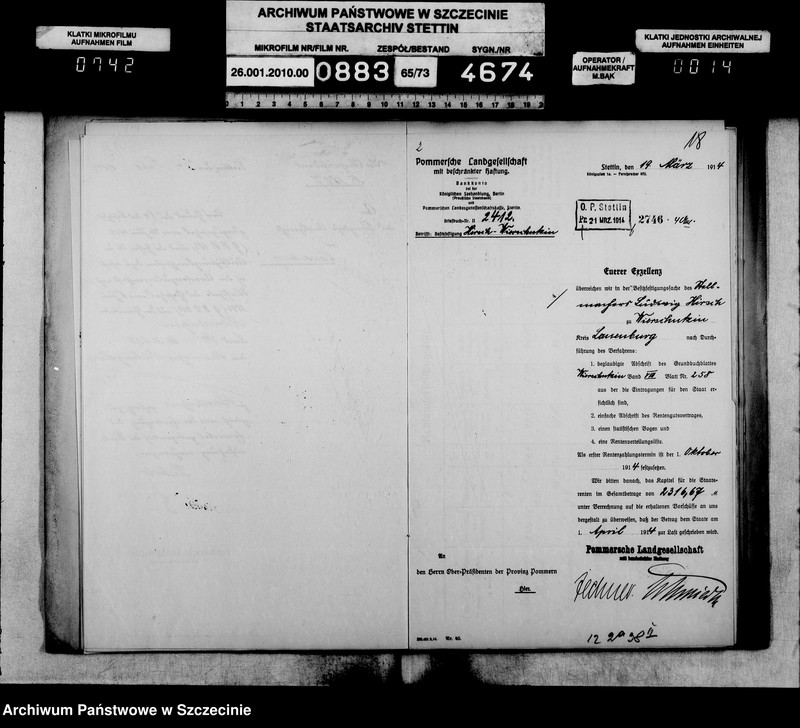 ARCHIWUM PAŃSTWOWE W SZCZECINIE
STAATSARCHIV STETTIN
KLATKI MIKROFILMU
AUFNAHMEN FILM
0742
MIKROFILM NR/FILM NR. ZESPÓŁ/BESTAND SYGN./NR
26.001.2010.00 0883 65/73 4674
OPERATOR /
AUFNAHMEKRAFT
M.BĄK
KLATKI JEDNOSTKI ARCHIWALNEJ
AUFNAHMEN EINHEITEN
0014
18
2
Pommersche Landgesellschaft
mit beschränkter Haftung.
Bankkonto
bei der
Königlichen Seehandlung, Berlin
(Preußische Staatsbank)
und
Pommerschen Landesgenossenschaftskasse, Stettin.
Briefbuch-Nr. II 2412.
Betrifft: Besitzfestigung Hirsch-Wierschutzin
Stettin, den 19. März 1914
Königsplatz 1a. — Fernsprecher
O. P. Stettin
Pr. 21 MRZ. 1914
2746
Euerer Exzellenz
überreichen wir in der Besitzfestigungssache des Stell-
machers Ludwig Hirsch
zu Wierschutzin
Kreis Lauenburg nach Durch-
führung des Verfahrens:
1. beglaubigte Abschrift des Grundbuchblattes
Wierschutzin Band VIII Blatt Nr. 258
aus der die Eintragungen für den Staat er-
sichtlich sind,
2. einfache Abschrift des Rentengutsvertrages,
3. einen statistischen Bogen und
4. eine Rentenverteilungsliste.
Als erster Rentenzahlungstermin ist der 1. Oktober
1914 festzusetzen.
Wir bitten danach, das Kapital für die Staats-
renten im Gesamtbetrage von 2316,67 M
unter Verrechnung auf die erhaltenen Vorschüsse an uns
dergestalt zu überweisen, daß der Betrag dem Staate am
1. April 1914 zur Last geschrieben wird.
Pommersche Landgesellschaft
mit beschränkter Haftung
An
den Herrn Ober-Präsidenten der Provinz Pommern
Hier.
Nr. 40.
Archiwum Państwowe w Szczecinie